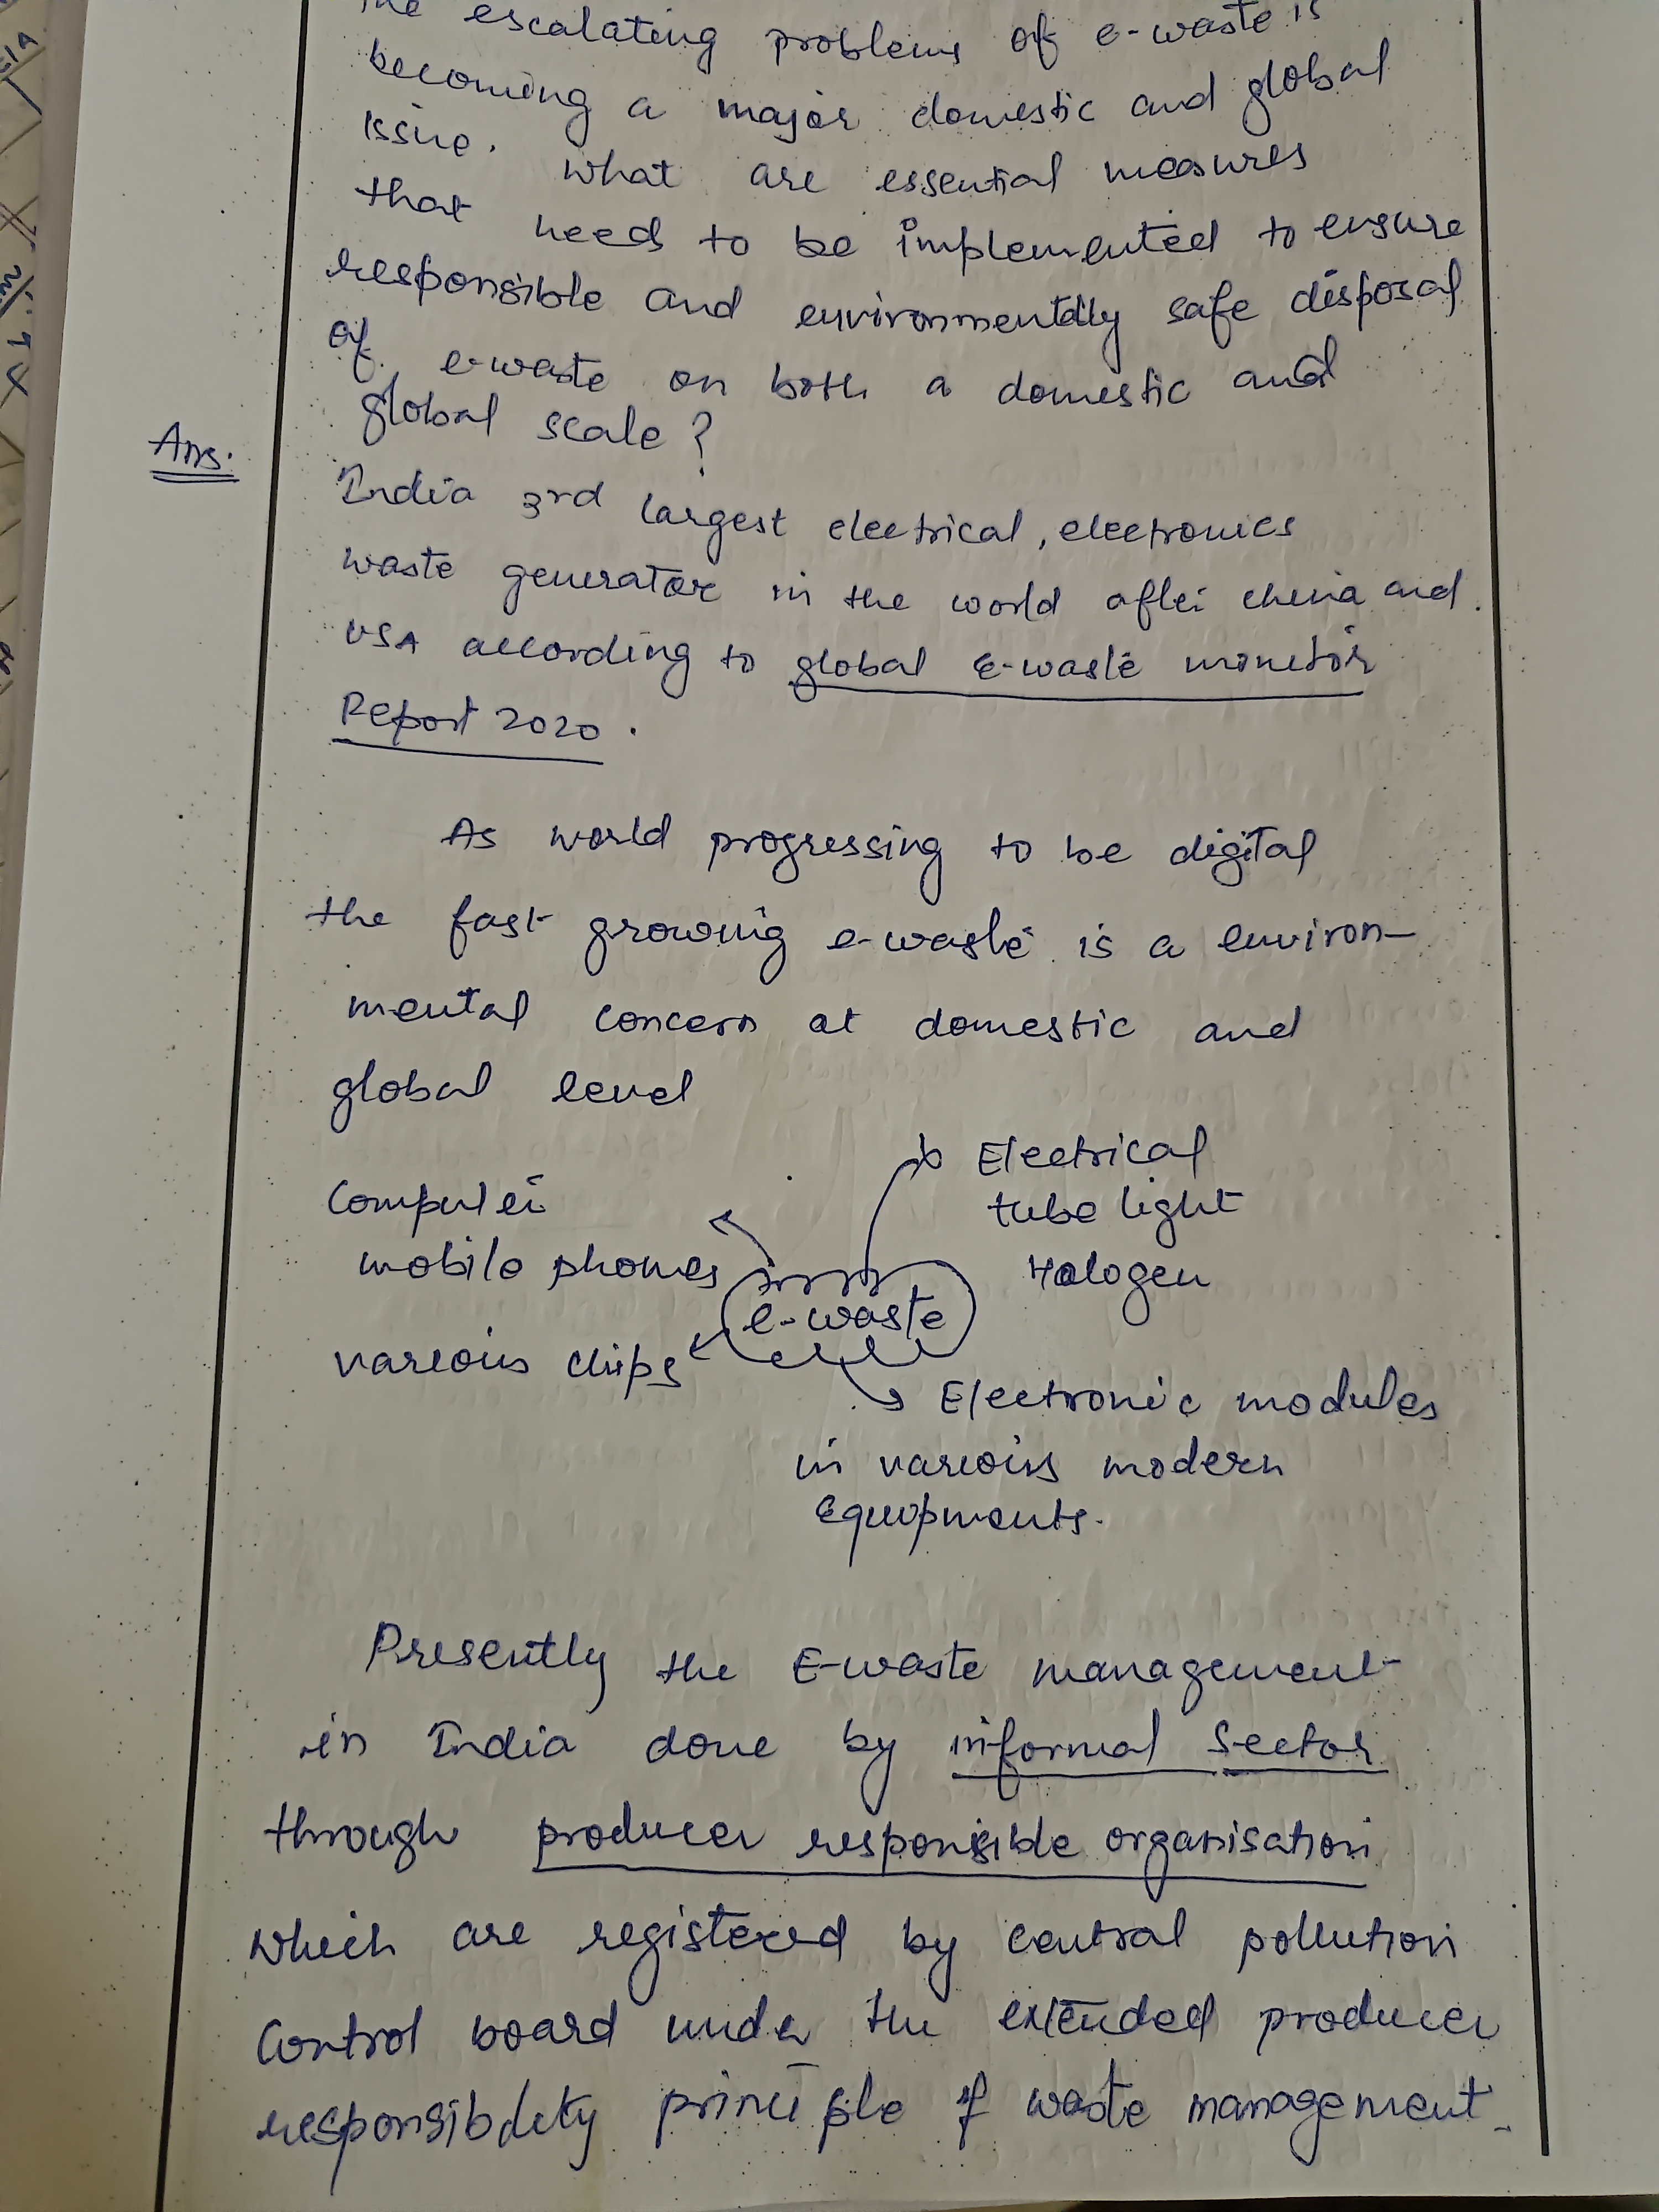 The escalating problems of e-waste is
becoming a major domestic and global
issue. what are essential measures
that need to be implemented to ensure
responsible and environmentally safe disposal
of e-waste on both a domestic and
global scale?
Ans.
India 3rd largest electrical, electronics
waste generator in the world after china and
USA according to global E-waste monitor
Report 2020.
As world progressing to be digital
the fast growing e-waste is a environ-
mental concern at domestic and
global level
Electrical
tube light
Halogen
Computer
mobile phones
e-waste
various chips
Electronic modules
in various modern
Equipments.
Presently the E-waste management
in India done by informal sector
through producer responsible organisation
which are registered by central pollution
control board under the extended producer
responsibility principle of waste management.